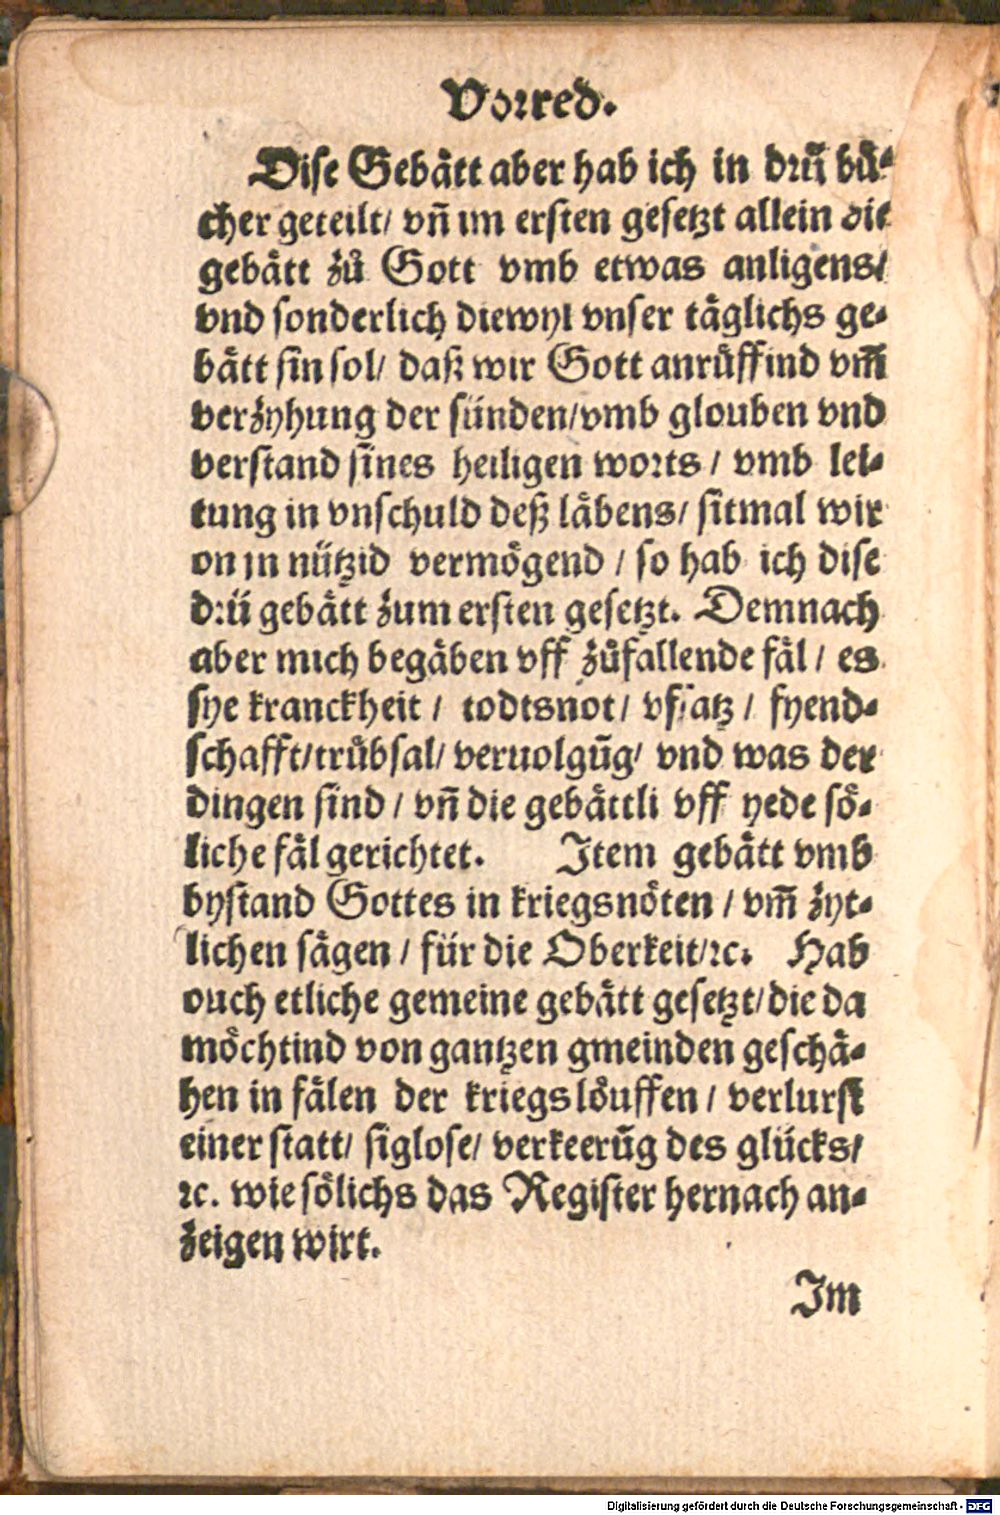 Vorred.
Dise Gebätt aber hab ich in drü bü-
cher geteilt/ vñ im ersten gesetzt allein die
gebätt zů Gott vmb etwas anligens/
vnd sonderlich diewyl vnser täglichs ge-
bätt sin sol/ daß wir Gott anrůffind vm̃
verzyhung der sünden/vmb glouben vnd
verstand sines heiligen worts / vmb lei-
tung in vnschuld deß läbens/ sitmal wir
on jn nützid vermögend / so hab ich dise
drü gebätt zum ersten gesetzt. Demnach
aber mich begäben vff zůfallende fäl / es
sye kranckheit / todtsnot/ vfsatz / fyend-
schafft/trůbsal/ veruolgūg/ vnd was der
dingen sind / vñ die gebättli vff yede sö-
liche fäl gerichtet. Item gebätt vmb
bystand Gottes in kriegsnöten / vm̃ zyt-
lichen sägen / für die Oberkeit/ꝛc. Hab
ouch etliche gemeine gebätt gesetzt/die da
möchtind von gantzen gmeinden geschä-
hen in fälen der kriegslöuffen / verlurst
einer statt/ siglose/ verkeerūg des glücks/
ꝛc. wie sölichs das Register hernach an-
zeigen wirt.
Im
Digitalisierung gefördert durch die Deutsche Forschungsgemeinschaft - DFG